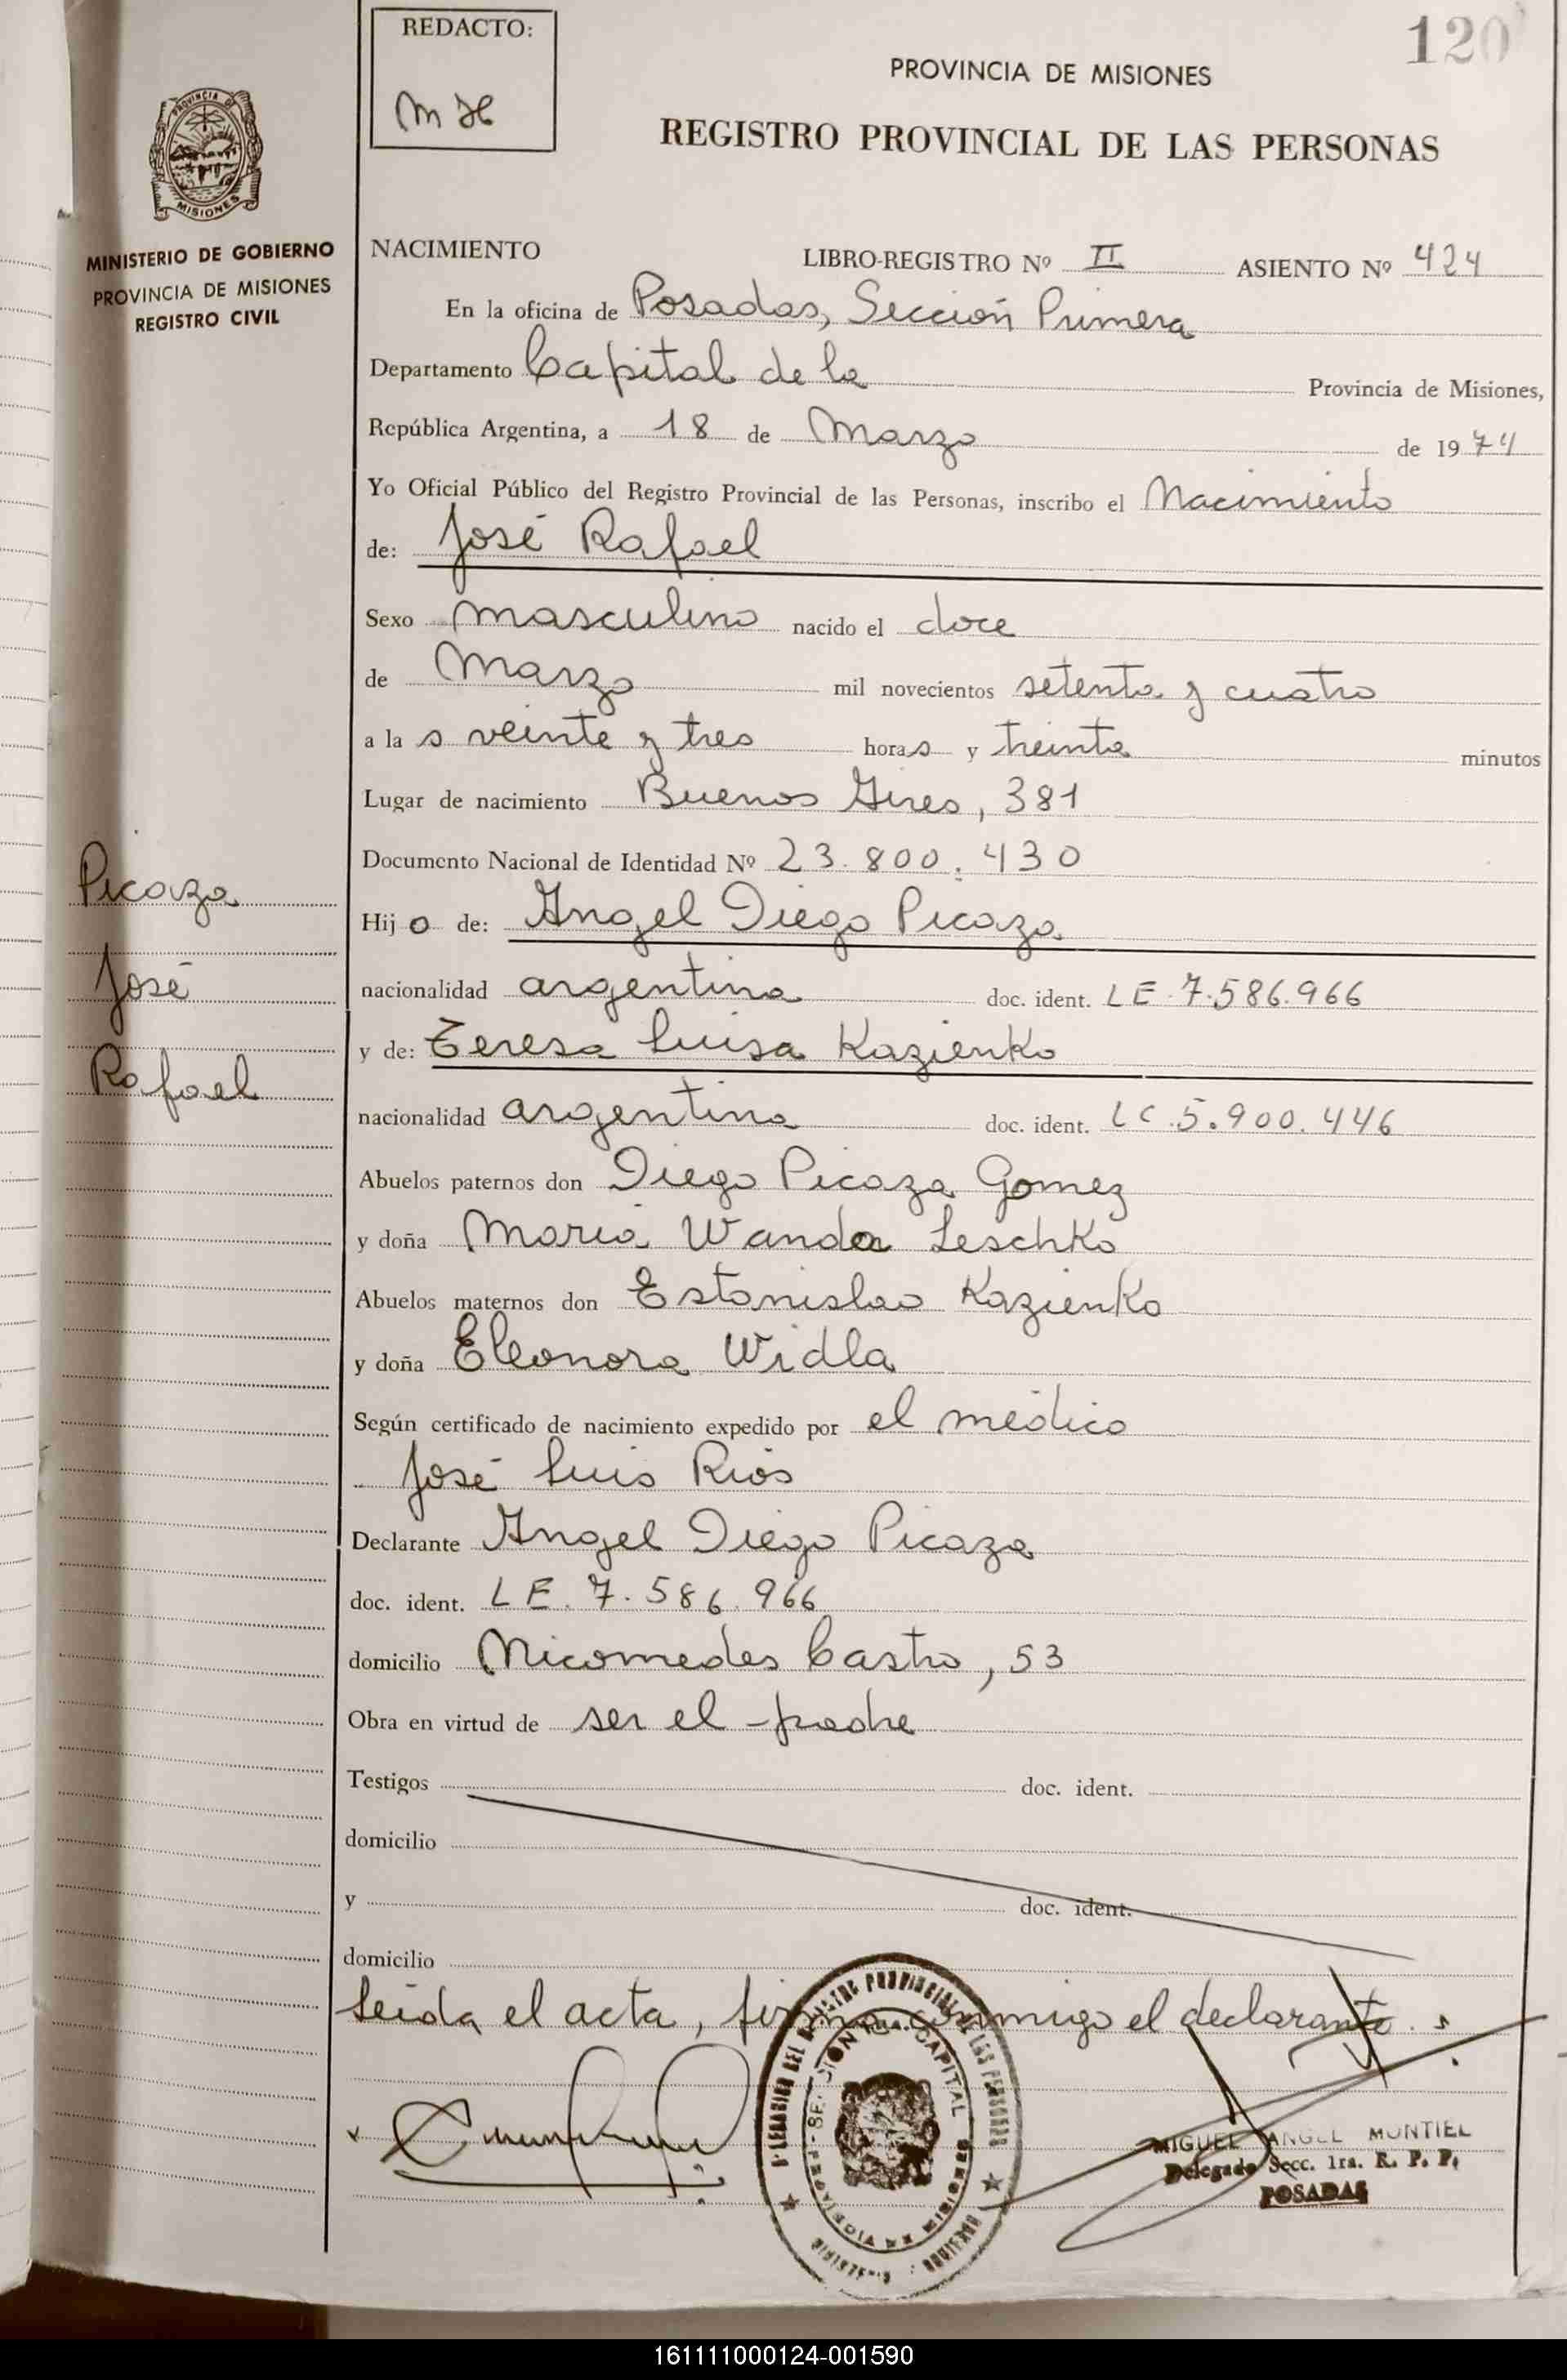 REDACTO:
M H
120
PROVINCIA DE MISIONES
REGISTRO PROVINCIAL DE LAS PERSONAS
PROVINCIA DE
MISIONES
MINISTERIO DE GOBIERNO
PROVINCIA DE MISIONES
REGISTRO CIVIL
NACIMIENTO LIBRO-REGISTRO Nº II ASIENTO Nº 424
En la oficina de Posadas, Sección Primera
Departamento Capital de la Provincia de Misiones,
República Argentina, a 18 de Marzo de 1974
Yo Oficial Público del Registro Provincial de las Personas, inscribo el Nacimiento
de: José Rafael
Sexo masculino nacido el doce
de Marzo mil novecientos setenta y cuatro
a la s veinte y tres horas y treinta minutos
Lugar de nacimiento Buenos Aires, 381
Documento Nacional de Identidad Nº 23.800.430
Picaza
José
Rafael
Hijo de: Angel Diego Picaza
nacionalidad argentina doc. ident. LE 7.586.966
y de: Teresa Luisa Kazienko
nacionalidad argentina doc. ident. LC 5.900.446
Abuelos paternos don Diego Picaza Gomez
y doña Maria Wanda Leschko
Abuelos maternos don Estanislao Kazienko
y doña Eleonora Widla
Según certificado de nacimiento expedido por el médico
José Luis Rios
Declarante Angel Diego Picaza
doc. ident. LE. 7.586.966
domicilio Nicomedes Castro, 53
Obra en virtud de ser el padre
Testigos doc. ident.
domicilio
y doc. ident.
domicilio
Leida el acta, firma conmigo el declarante.
MIGUEL ANGEL MONTIEL
Delegado Secc. 1ra. R. P. P.
POSADAS
161111000124-001590